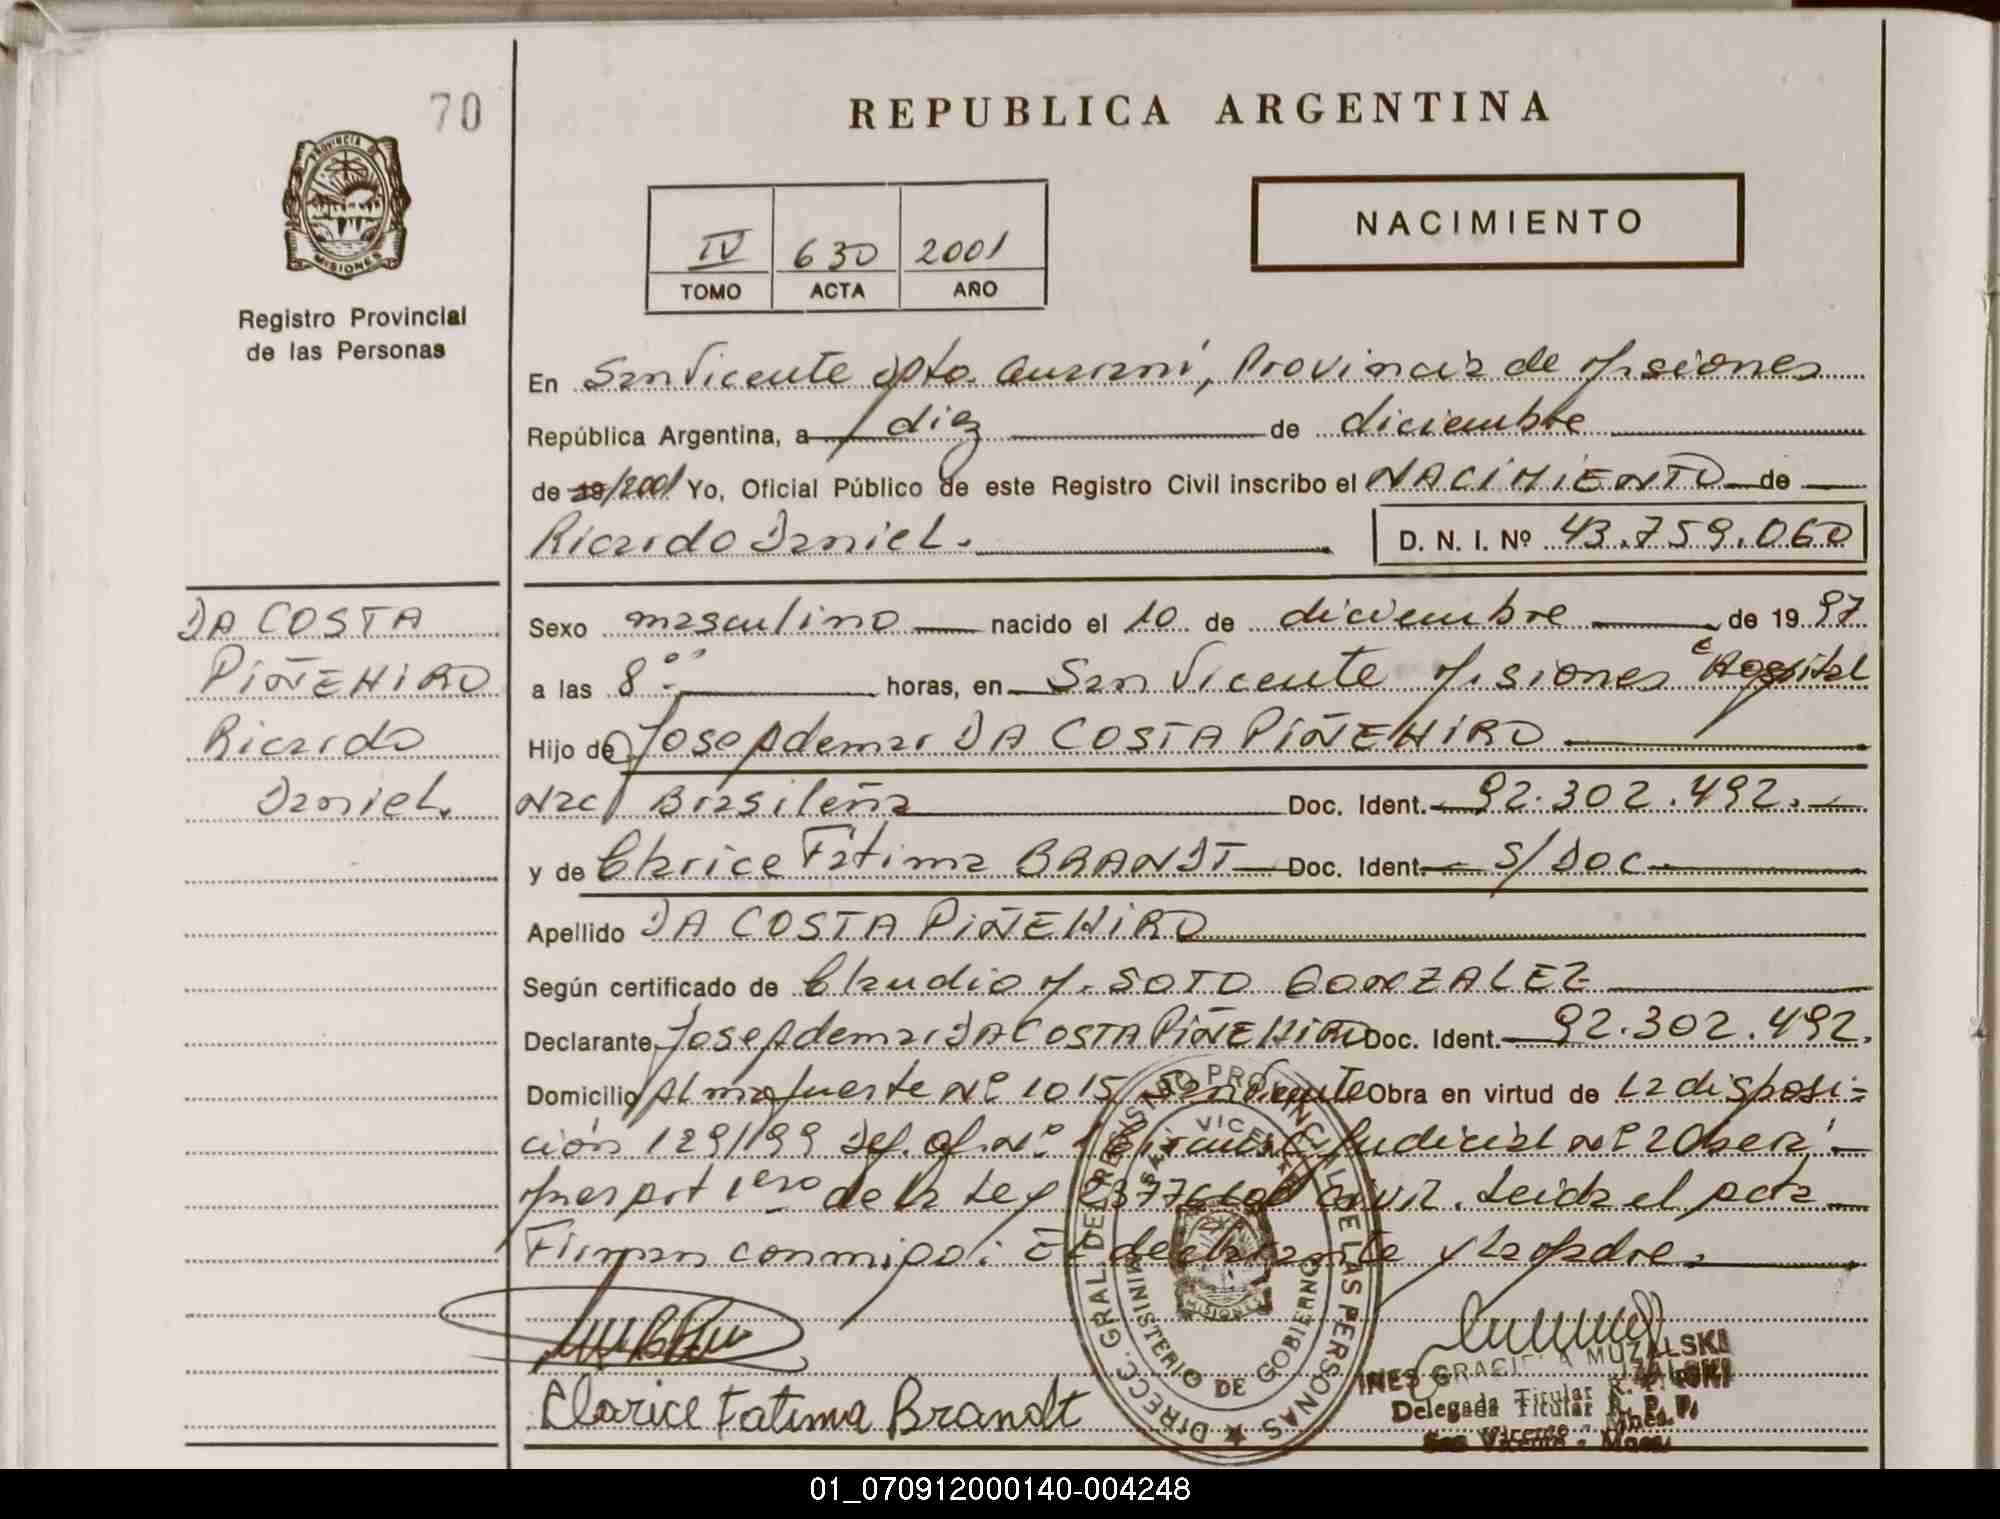 70
REPUBLICA ARGENTINA
PROVINCIA DE
MISIONES
Registro Provincial
de las Personas
IV 630 2001
TOMO ACTA AÑO
NACIMIENTO
En San Vicente Dpto. Guaraní, Provincia de Misiones
República Argentina, a diez de diciembre
de 19/2001 Yo, Oficial Público de este Registro Civil inscribo el NACIMIENTO de
Ricardo Daniel. D. N. I. Nº 43.759.060
DA COSTA
PIÑEHIRO
Ricardo
Daniel.
Sexo masculino nacido el 10 de diciembre de 19 97
a las 8:00 horas, en San Vicente Misiones Hospital
Hijo de Jose Ademar DA COSTA PIÑEHIRO
Nac Brasileña Doc. Ident. 92.302.492.
y de Clarice Fatima BRANDT Doc. Ident. S/DOC
Apellido DA COSTA PIÑEHIRO
Según certificado de Claudio M. SOTO GONZALEZ
Declarante Jose Ademar DA COSTA PIÑEHIRO Doc. Ident. 92.302.492.
Domicilio Almafuerte Nº 1015 San Vicente Obra en virtud de La disposi-
ción 129/99 Def. Of. Nº 1 Judicial Nº 2 Obera
de la Ley 23776 Civil. Leida el acta
Firman conmigo: El declarante y la Madre.
DIRECC. GRAL. DEL REGISTRO PROVINCIAL DE LAS PERSONAS
SAN VICENTE
MINISTERIO DE GOBIERNO
MISIONES
Clarice Fatima Brandt
INES GRACIELA MUZALSKI
Delegada Titular R. P. P.
San Vicente - Mnes.
01_070912000140-004248